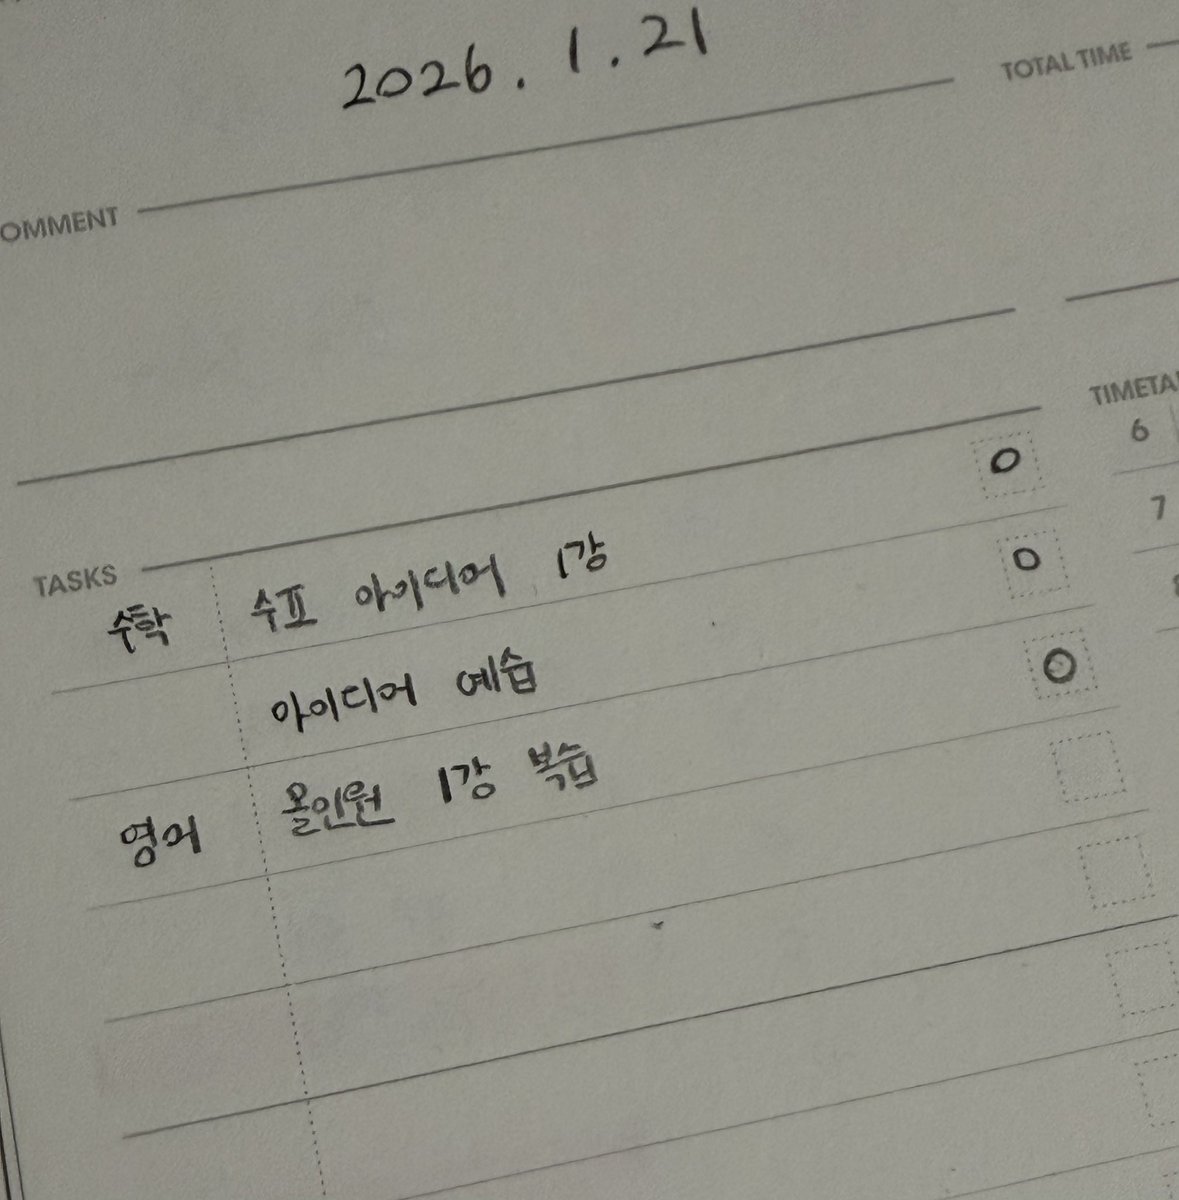 2026.1.21
TOTAL TIME
OMMENT
TIMETA
6
7
TASKS
수학 수표 아이디어 1강
아이디어 예습
영어 올인원 1강 복습